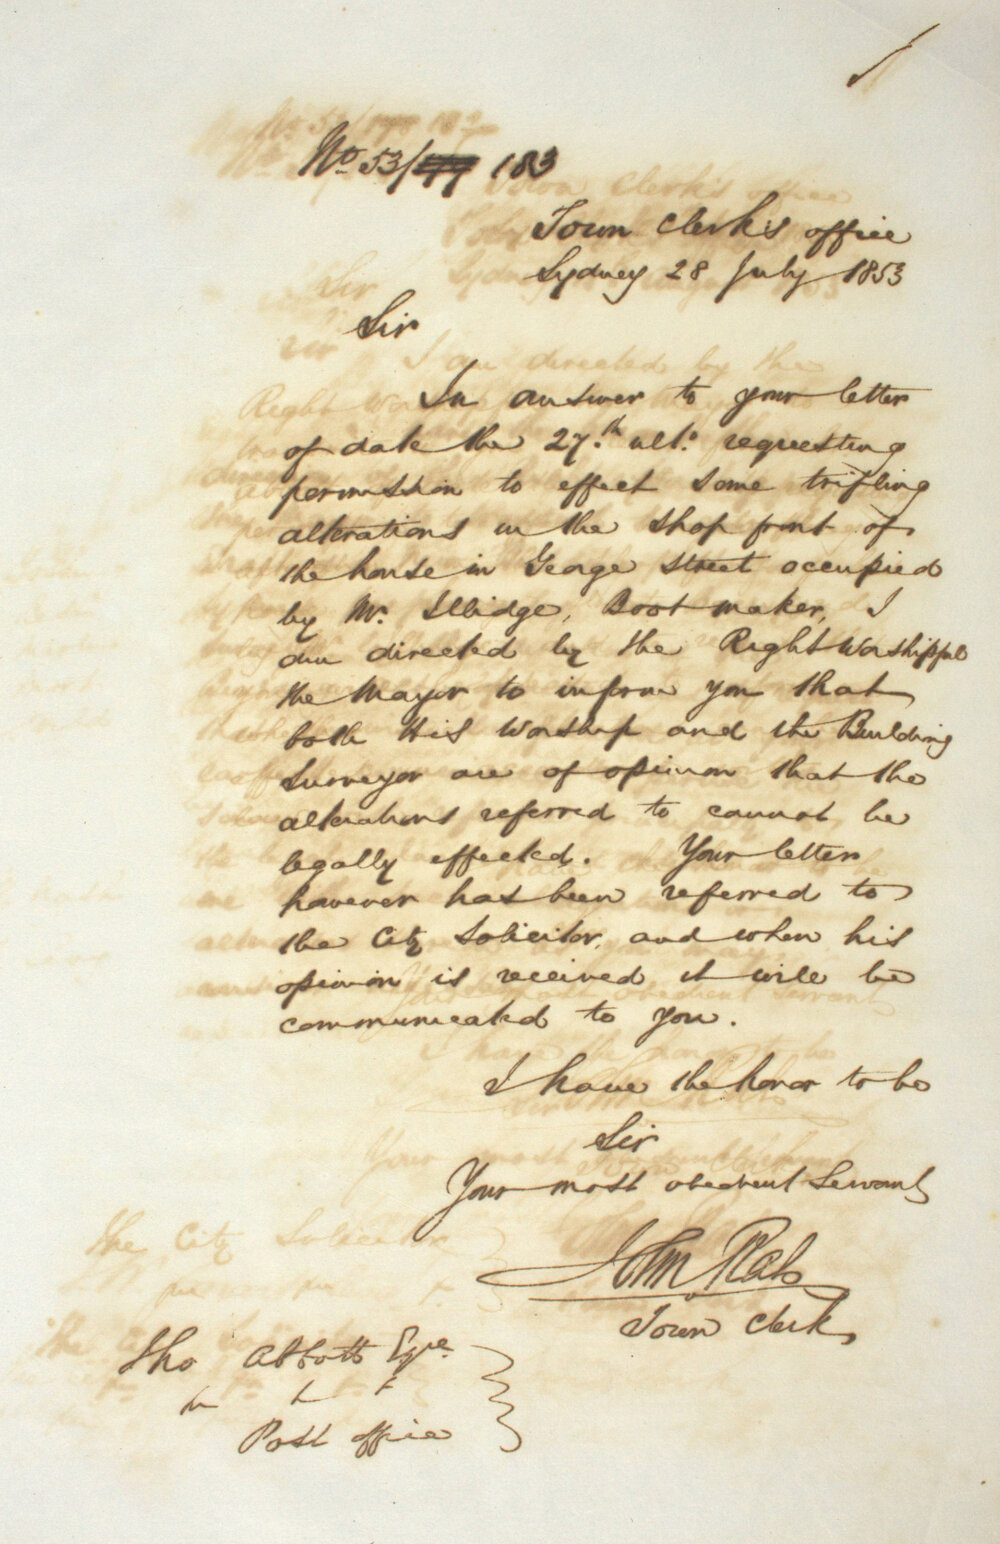 No. 53/179 183
Town Clerk's office
Sydney 28 July 1853
Sir
In answer to your letter
of date the 27.th ult.o requesting
permission to effect some trifling
alterations in the shop front of
the house in George Street occupied
by Mr. Illidge, Boot maker, I
am directed by the Right Worshipful
the Mayor to inform you that
both His Worship and the Building
Surveyor are of opinion that the
alterations referred to cannot be
legally effected. Your letter
however has been referred to
the City Solicitor, and when his
opinion is received it will be
communicated to you.
I have the honor to be
Sir
Your most obedient Servant
John Rae
Town Clerk
Tho Abbott Esqre
Post office